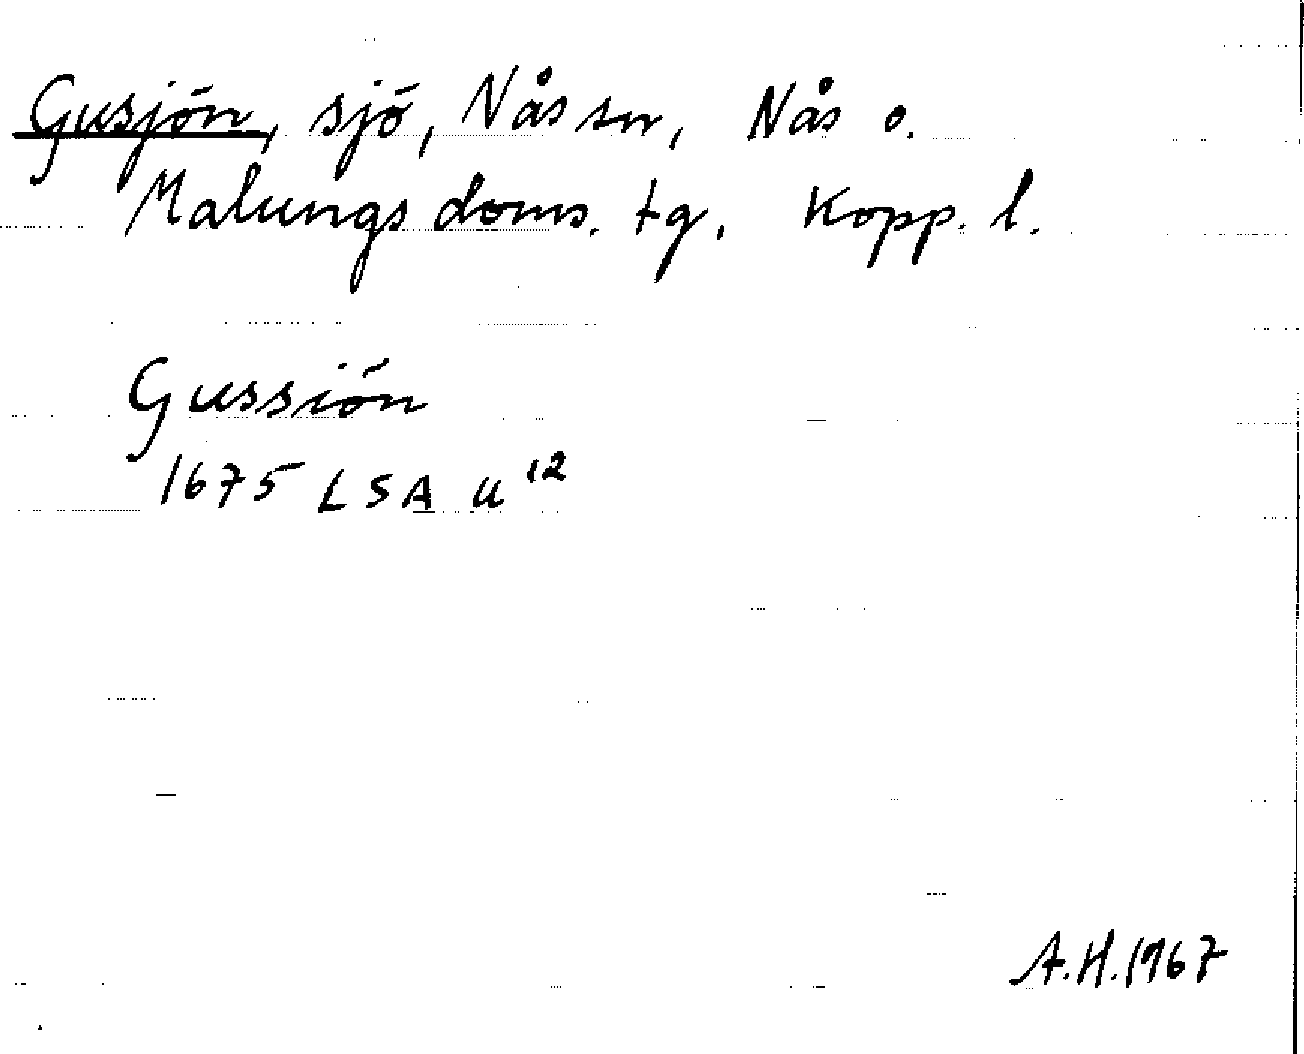 Gusjön, sjö, Nås sn, Nås o.
Malungs doms. tg, Kopp. l.
Gussiön
1675 LSA U 12
A.H. 1967